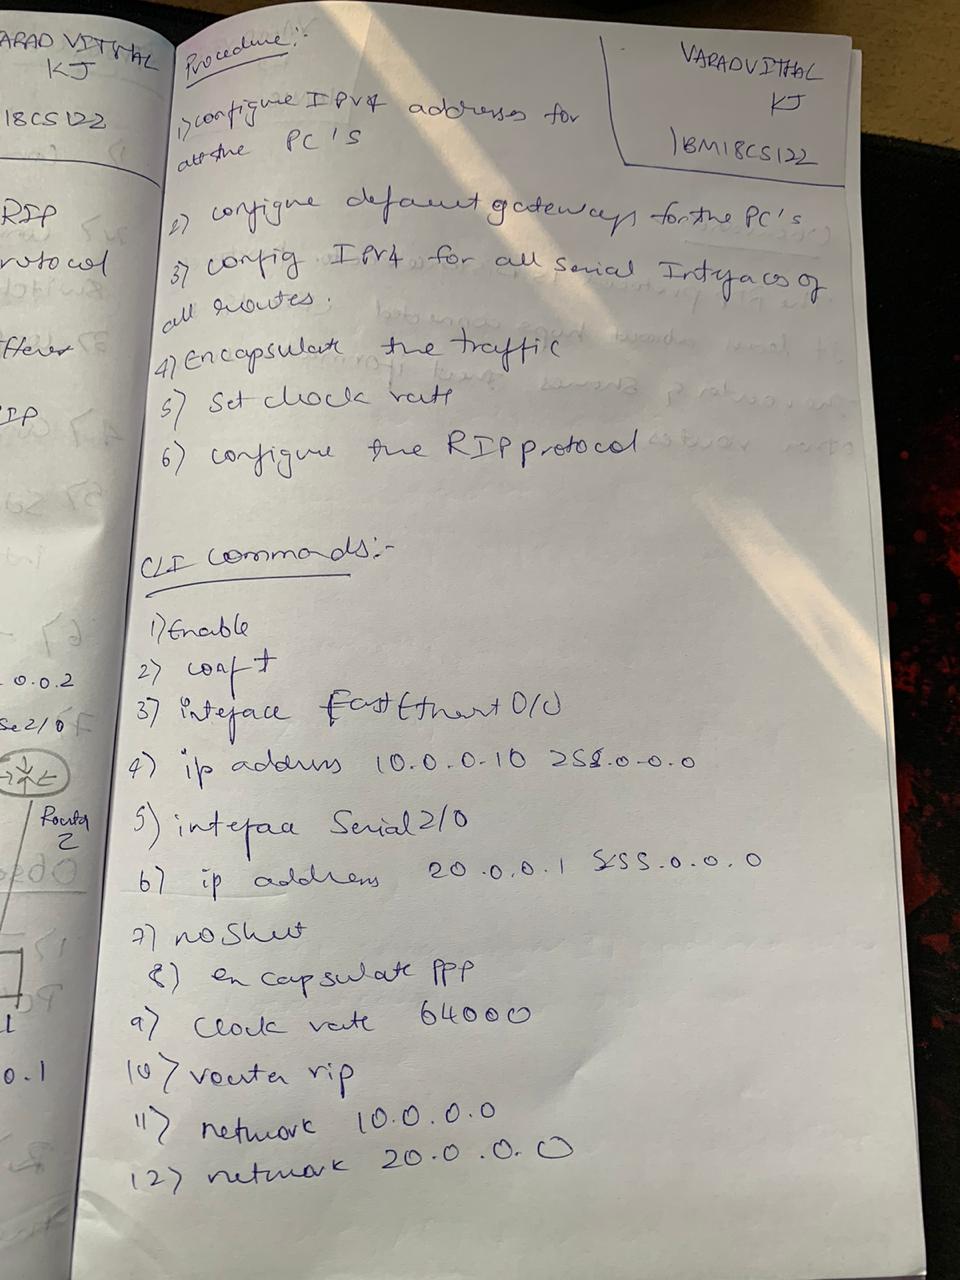 ARAD VITTHAL
KJ
18CS122
RIP
rotocol
IP
0.0.2
Se2/0
Router
2
0.1
VARADVITHAL
KJ
1BM18CS122
Procedure:-
1) configure IPV4 addresses for
all the PC'S
2) configure default gateways for the PC's
3) config IPV4 for all Serial Interfaces of
all routes.
4) Encapsulate the traffic
5) Set clock rate
6) configure the RIP protocol
CLI commands:-
1) Enable
2) conf t
3) inteface FastEthernet 0/0
4) ip address 10.0.0.10 255.0.0.0
5) inteface Serial 2/0
6) ip address 20.0.0.1 255.0.0.0
7) no shut
8) encapsulate PPP
9) Clock rate 64000
10) router rip
11) network 10.0.0.0
12) network 20.0.0.0